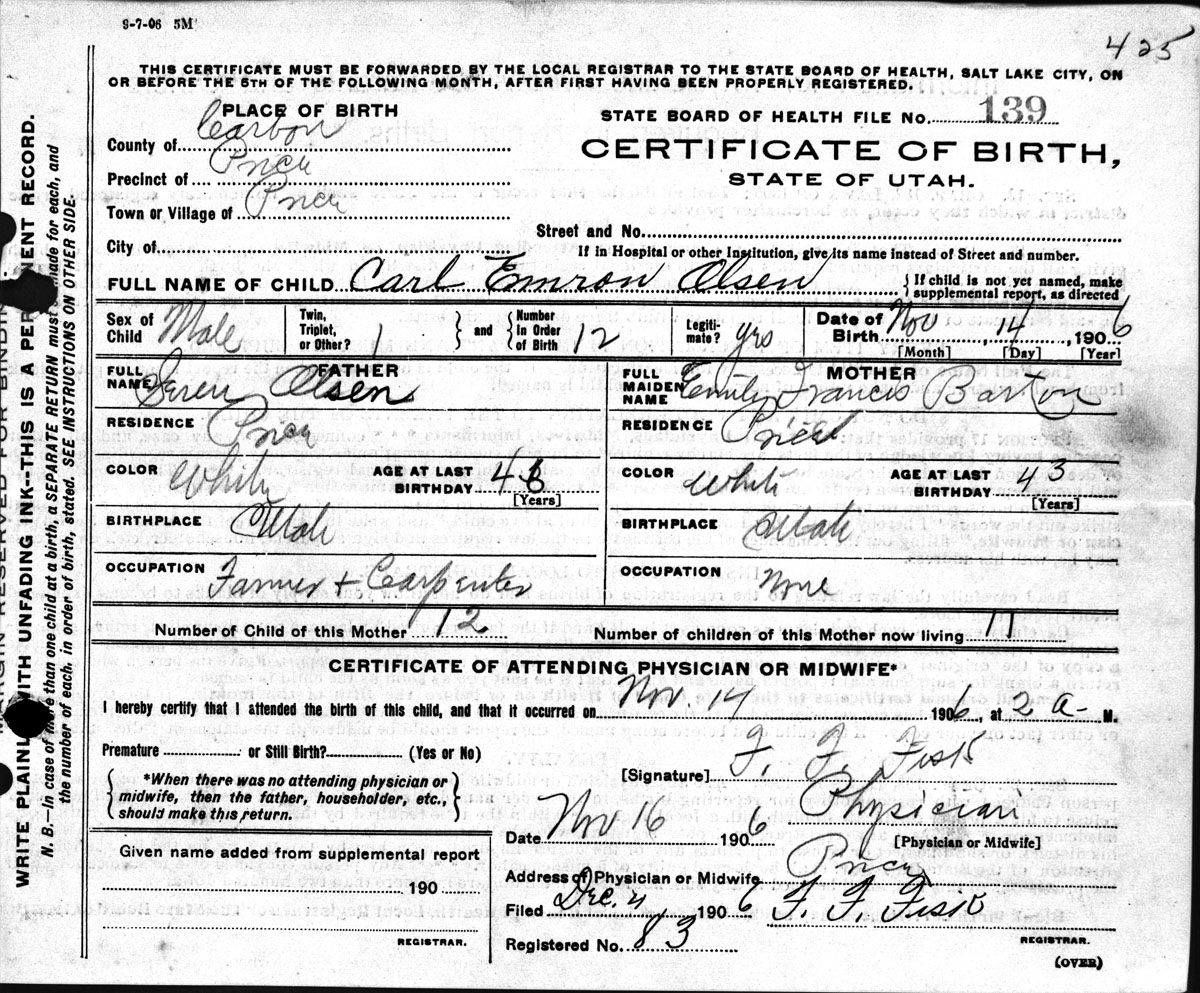 9-7-06 5M
425
THIS CERTIFICATE MUST BE FORWARDED BY THE LOCAL REGISTRAR TO THE STATE BOARD OF HEALTH, SALT LAKE CITY, ON
OR BEFORE THE 5TH OF THE FOLLOWING MONTH, AFTER FIRST HAVING BEEN PROPERLY REGISTERED.
PLACE OF BIRTH
County of Carbon
Precinct of Price
Town or Village of Price
City of
STATE BOARD OF HEALTH FILE No. 139
CERTIFICATE OF BIRTH,
STATE OF UTAH.
Street and No.
If in Hospital or other Institution, give its name instead of Street and number.
FULL NAME OF CHILD Carl Emron Olsen { If child is not yet named, make
supplemental report, as directed
Sex of Child Male Twin, Triplet, or Other? 1 } and { Number In Order of Birth 12 Legiti-mate? yrs Date of Birth Nov 14, 1906
[Month] [Day] [Year]
FATHER
FULL NAME Seren Olsen
RESIDENCE Price
COLOR White AGE AT LAST BIRTHDAY 48
[Years]
BIRTHPLACE Utah
OCCUPATION Farmer + Carpenter
MOTHER
FULL MAIDEN NAME Emily Francis Barton
RESIDENCE Price
COLOR White AGE AT LAST BIRTHDAY 43
[Years]
BIRTHPLACE Utah
OCCUPATION None
Number of Child of this Mother 12 Number of children of this Mother now living 11
CERTIFICATE OF ATTENDING PHYSICIAN OR MIDWIFE*
I hereby certify that I attended the birth of this child, and that it occurred on Nov 14 1906, at 2 a- M.
Premature or Still Birth? (Yes or No)
{ *When there was no attending physician or
midwife, then the father, householder, etc.,
should make this return. }
[Signature] F. F. Fisk
Physician
[Physician or Midwife]
Date Nov 16 1906
Address of Physician or Midwife Price
Filed Dec. 4 1906 F. F. Fisk
REGISTRAR.
Registered No. 83
(OVER)
Given name added from supplemental report
190
REGISTRAR.
WRITE PLAINLY WITH UNFADING INK--THIS IS A PERMENENT RECORD.
N. B.—In case of more than one child at a birth, a SEPARATE RETURN must be made for each, and
the number of each, in order of birth, stated. SEE INSTRUCTIONS ON OTHER SIDE.
MARGIN RESERVED FOR BINDING